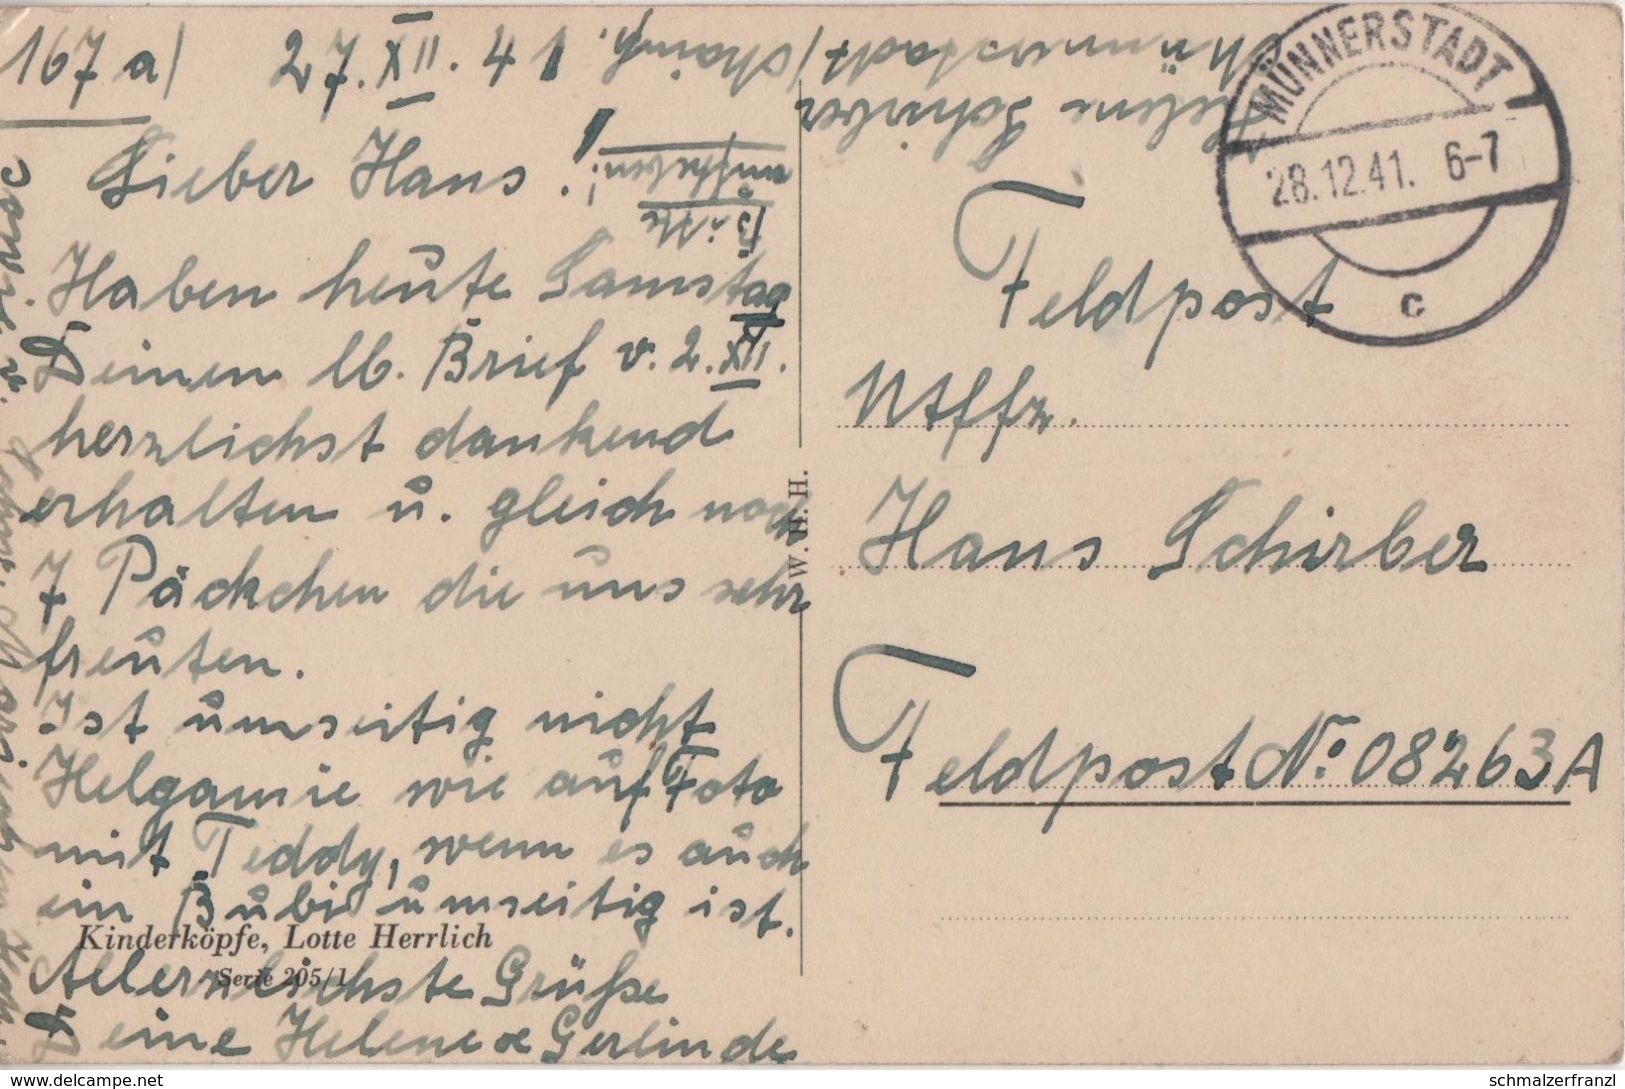 167 a) 27. XII. 41.
Lieber Hans!
Bitte
aufheben!
Haben heute Samstag
Deinen lb. Brief v. 2. XII.
herzlichst dankend
erhalten u. gleich noch
7 Päckchen die uns sehr
freuten.
Ist umseitig nicht
Helgamie wie auf Foto
mit Teddy, wenn es auch
ein Bubi umseitig ist.
Allerherzlichste Grüße
Deine Helene & Gerlinde
Kinderköpfe, Lotte Herrlich
Serie 205/1
W. H. H.
Helene Schirber
Münnerstadt/Mainfr.
MÜNNERSTADT
28.12.41. 6-7
c
Feldpost
Uffz.
Hans Schirber
Feldpost No. 08263A
www.delcampe.net
schmalzerfranzl